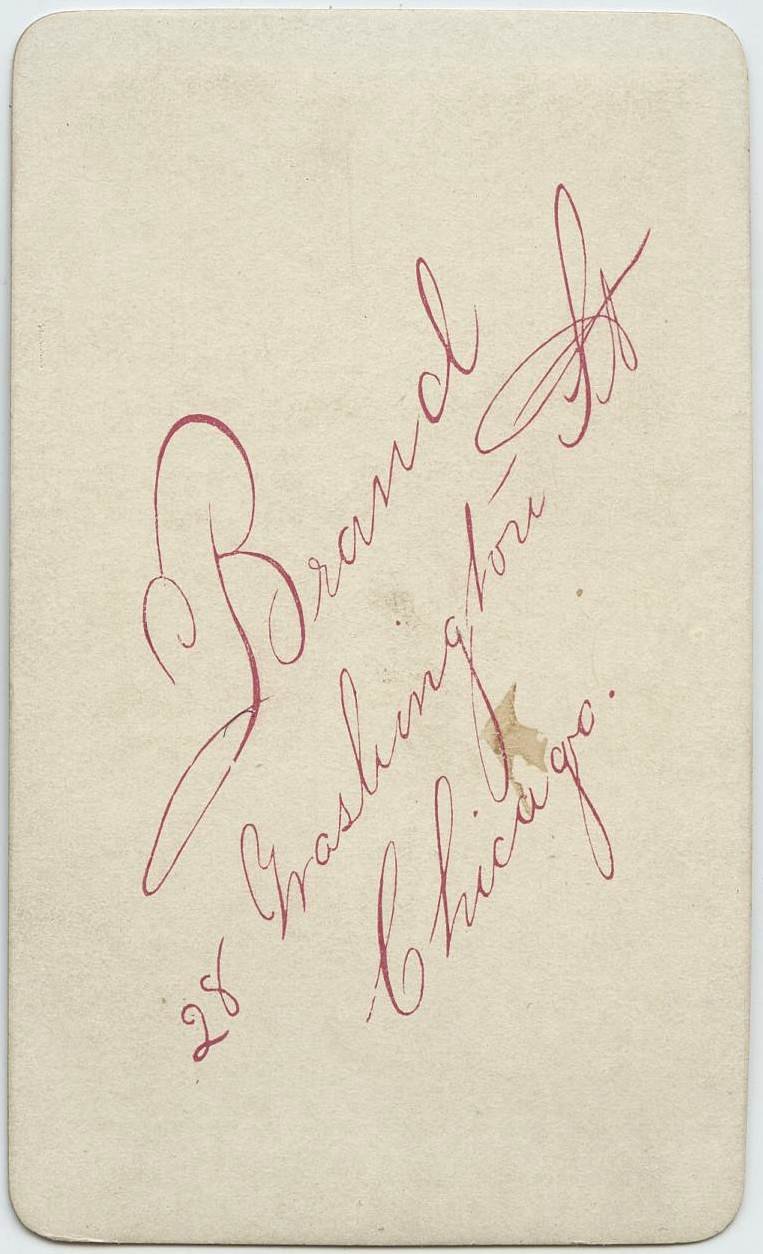 Brand
28 Washington St
Chicago.